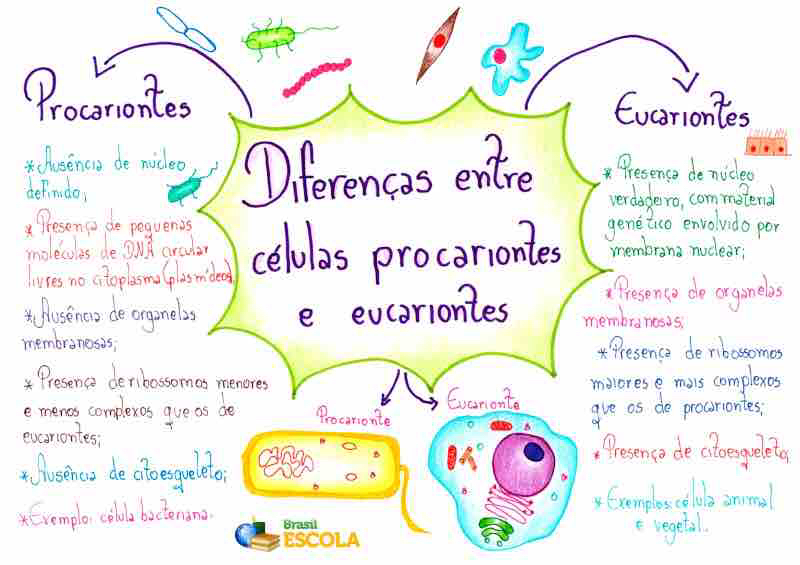 Diferenças entre
células procariontes
e eucariontes
Procariontes
*Ausência de núcleo
definido;
*Presença de pequenas
moléculas de DNA circular
livres no citoplasma (plasmídeos);
*Ausência de organelas
membranosas;
*Presença de ribossomos menores
e menos complexos que os de
eucariontes;
*Ausência de citoesqueleto;
*Exemplo: célula bacteriana.
Eucariontes
*Presença de núcleo
verdadeiro, com material
genético envolvido por
membrana nuclear;
*Presença de organelas
membranosas;
*Presença de ribossomos
maiores e mais complexos
que os de procariontes;
*Presença de citoesqueleto;
*Exemplos: célula animal
e vegetal.
Procarionte
Eucarionte
Brasil
ESCOLA